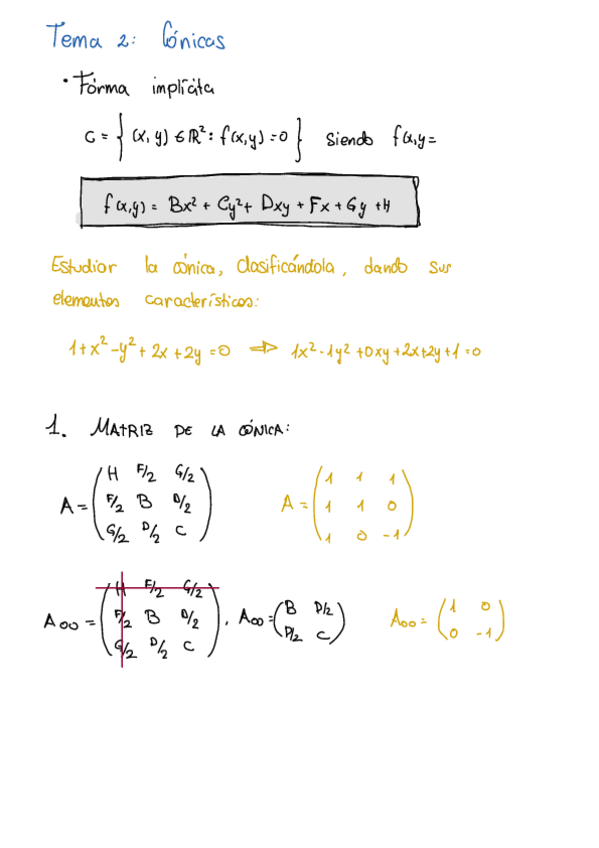 Tema 2: Cónicas
• Fórma implícita
C = { (x, y) ∈ R² : f(x,y) = 0 } Siendo f(x,y=
f(x,y) = Bx² + Cy² + Dxy + Fx + Gy + H
Estudiar la cónica, clasificándola, dando sus
elementos característicos:
1+x²-y²+2x+2y=0 ⇒ 1x²-1y²+0xy+2x+2y+1=0
1. MATRIZ DE LA CÓNICA:
A = ( H F/2 G/2 ; F/2 B D/2 ; G/2 D/2 C ) A = ( 1 1 1 ; 1 1 0 ; 1 0 -1 )
A00 = ( H F/2 G/2 ; F/2 B D/2 ; G/2 D/2 C ), A00 = ( B D/2 ; D/2 C ) A00 = ( 1 0 ; 0 -1 )